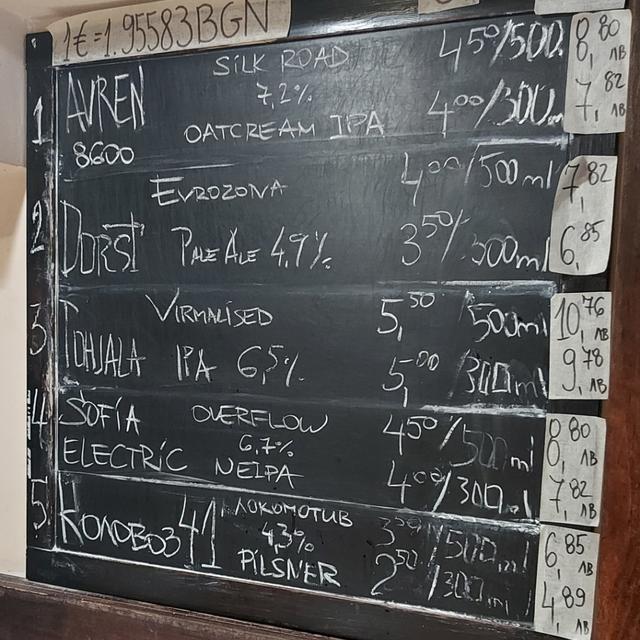 1€=1.95583BGN
1
AVREN
8600
SILK ROAD
7,2%
OATCREAM IPA
4 50/500
4 00/300m
8,80 лв
7,82 лв
2
DORST
EVROZONA
PALE ALE 4,9%
4 00/500ml
3 50/300ml
7,82
6,85
3
POHJALA
VIRMALISED
IPA 6,5%
5,50 /500ml
5,00 /300ml
10,76 лв
9,78 лв
4
SOFIA
ELECTRIC
OVERFLOW
6,7%
NEIPA
4 50/500ml
4 00/300ml
8,80 лв
7,82 лв
5
КОЛОВОЗ 41
ЛОКОМОТИВ
4,3%
PILSNER
3 50/500ml
2 50/300ml
6,85 лв
4,89 лв